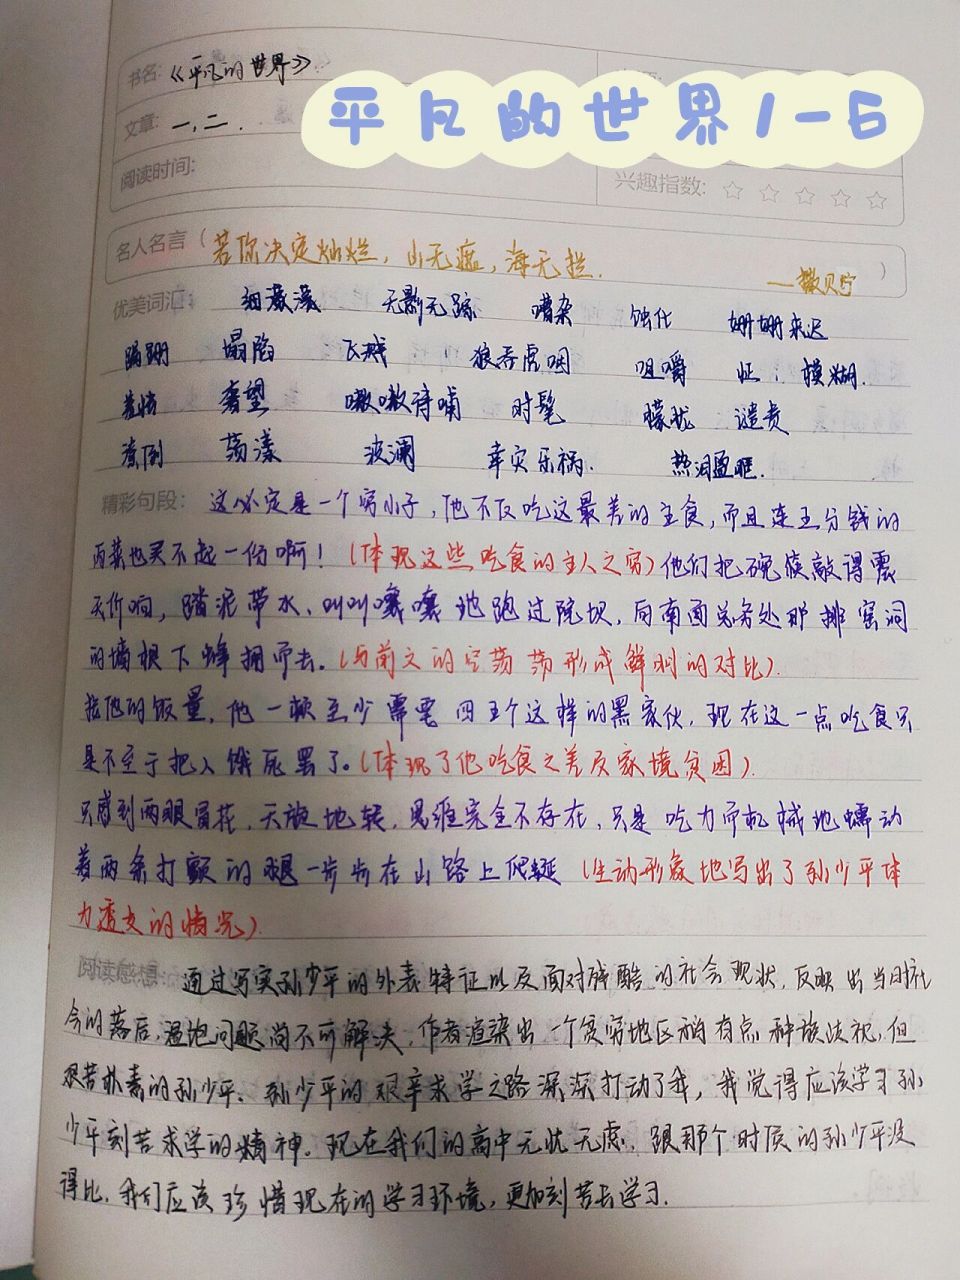 平凡的世界1-6
书名:《平凡的世界》
文章:一,二.
阅读时间:
兴趣指数:☆☆☆☆☆
名人名言(若你决定灿烂,山无遮,海无拦.
——撒贝宁)
优美词汇: 细濛濛 无影无踪 嘈杂 蚀化 姗姗来迟
蹒跚 塌陷 飞溅 狼吞虎咽 咀嚼 怔 模糊
羞怯 奢望 嗷嗷待哺 时髦 朦胧 谴责
潦倒 荡漾 波澜 幸灾乐祸. 热泪盈眶.
精彩句段: 这必定是一个穷小子,他不仅吃这最差的主食,而且连五分钱的
丙菜也买不起一份啊!(体现这些吃食的主人之穷)他们把碗筷敲得震
天价响,踏泥带水、叫叫嚷嚷地跑过院坝,向南面总务处那排窑洞
的墙根下蜂拥而去。(与前文的空荡荡形成鲜明的对比).
按他的饭量,他一顿至少需要四五个这样的黑家伙,现在这一点吃食只
是不至于把人饿死罢了。(体现了他吃食之差及家境贫困).
只感到两眼冒花,天旋地转,思维完全不存在,只是吃力而机械地蠕动
着两条打颤的腿一步步在山路上爬蜒(生动形象地写出了孙少平体
力透支的情况).
阅读感想: 通过写实孙少平的外表特征以及面对残酷的社会现状,反映出当时社
会的落后,温饱问题尚不可解决,作者渲染出一个贫穷地区稍有点种族歧视,但
艰苦朴素的孙少平、孙少平的艰辛求学之路深深打动了我,我觉得应该学习孙
少平刻苦求学的精神.现在我们的高中无忧无虑,跟那个时候的孙少平没
得比,我们应该珍惜现在的学习环境,更加刻苦去学习.